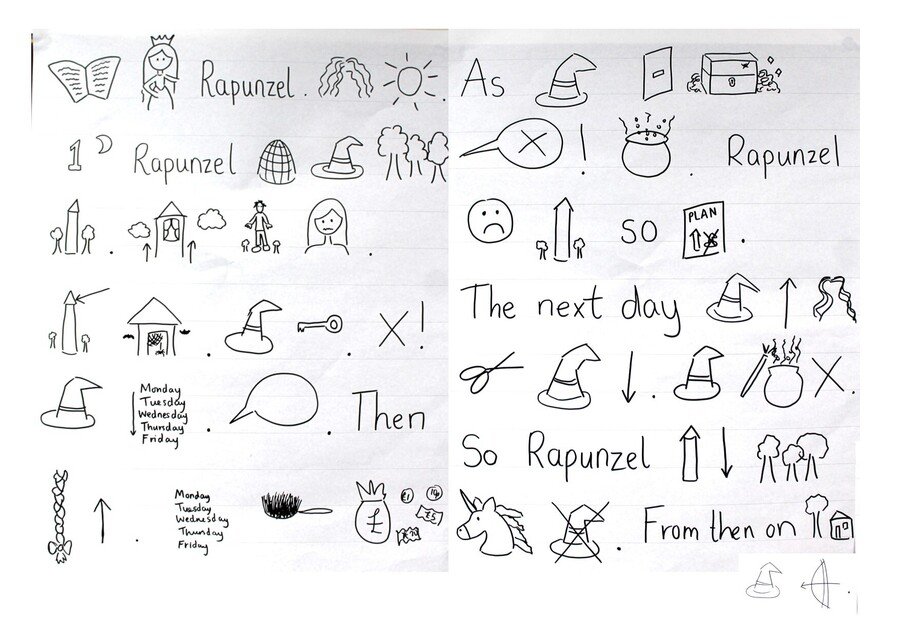 Rapunzel.
1 Rapunzel
.
. . X!
Monday
Tuesday
Wednesday
Thursday
Friday
. . Then
.
Monday
Tuesday
Wednesday
Thursday
Friday
£
£1
£5
As
X ! . Rapunzel
so PLAN .
The next day
. X.
So Rapunzel
. From then on
.